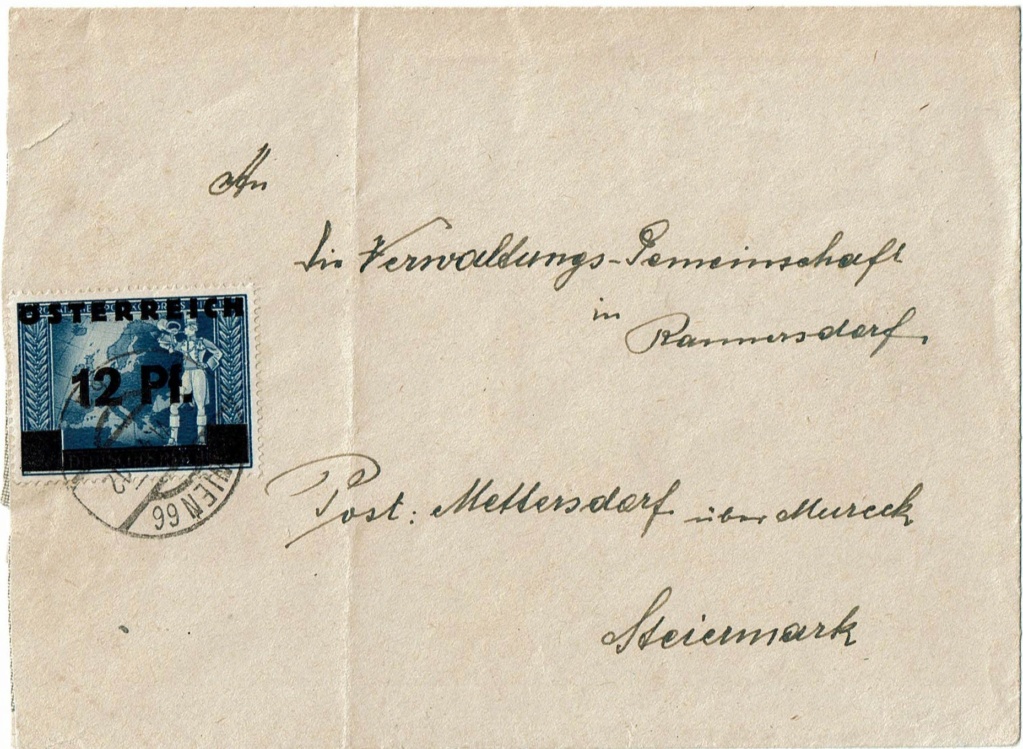 An
die Verwaltungs-Gemeinschaft
in
Rannersdorf.
ÖSTERREICH
12 Pf.
WIEN 66
12
Post: Mettersdorf über Mureck
Steiermark